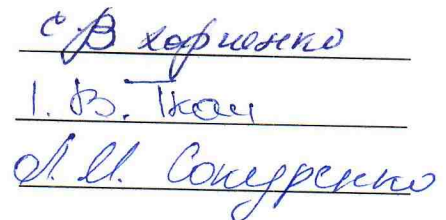 С В Харченко
І. В. Ткач
Л. М. Сокуренко